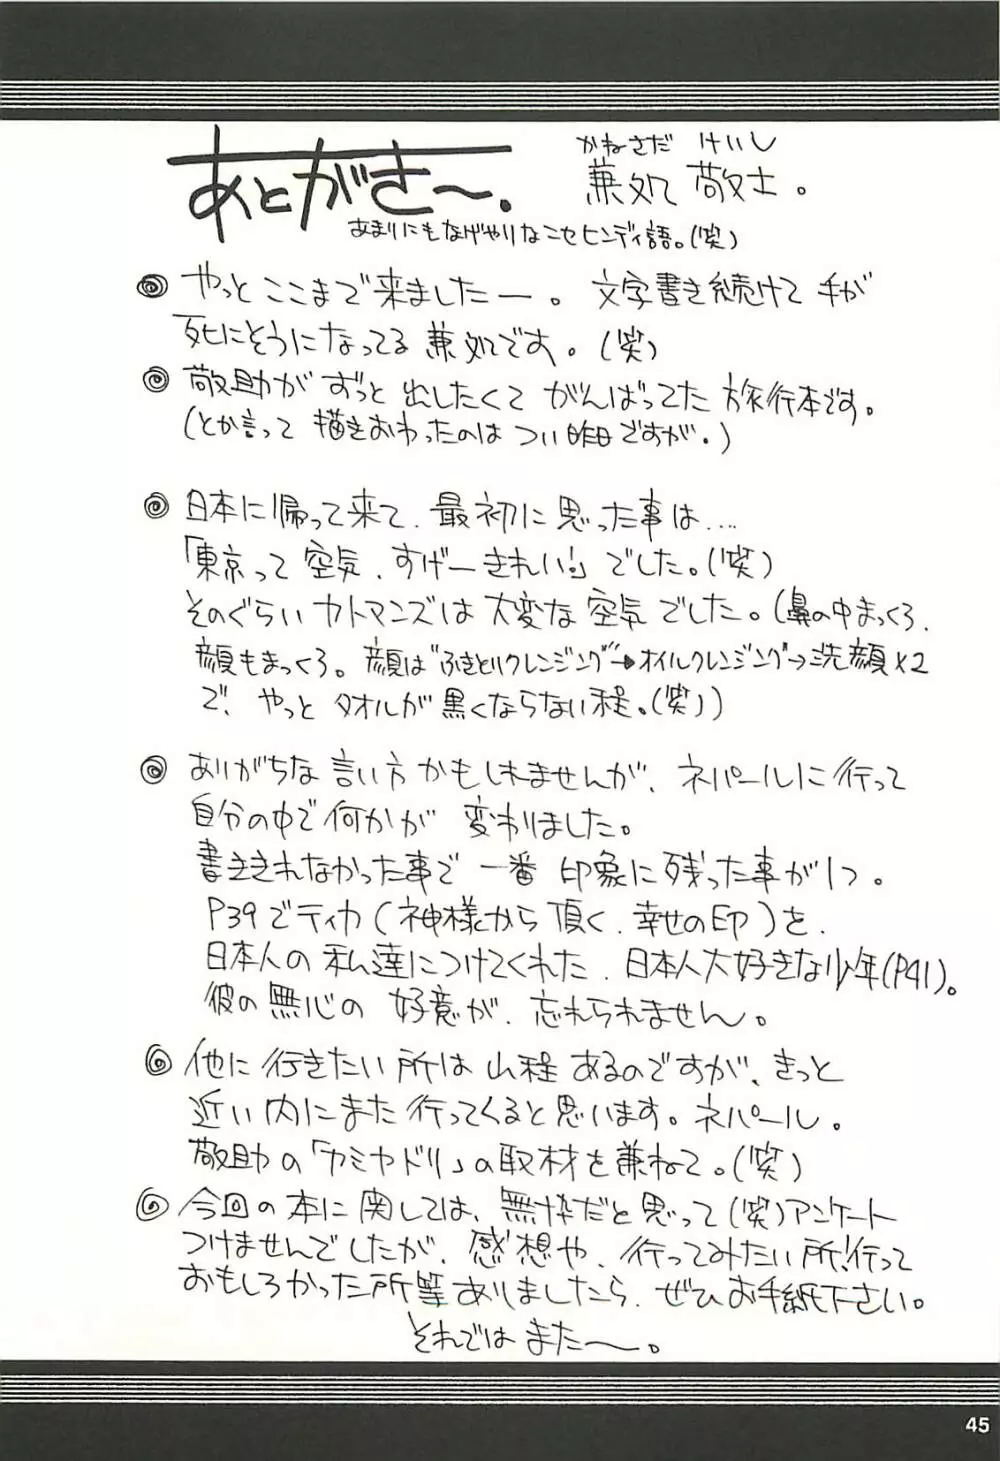 かねさだ けいし
あとがき〜。 兼処 敬士。
あまりにもなげやりなニセヒンディ語。(笑)
やっとここまで来ましたー。 文字書き続けて手が
死にそうになってる兼処です。(笑)
敬助がずっと出したくてがんばってた旅行本です。
(とか言って描きおわったのはつい昨日ですが。)
日本に帰って来て、最初に思った事は‥‥
「東京って空気、すげーきれい!」でした。(笑)
そのぐらいカトマンズは大変な空気でした。(鼻の中まっくろ、
顔もまっくろ。顔は"ふきとりクレンジング"→オイルクレンジング→洗顔×2
で、やっとタオルが黒くならない程。(笑))
ありがちな言い方かもしれませんが、ネパールに行って
自分の中で何かが変わりました。
書ききれなかった事で一番印象に残った事が1つ。
P39でティカ(神様から頂く、幸せの印)を、
日本人の私達につけてくれた、日本人大好きな少年(P41)。
彼の無心の好意が、忘れられません。
他に行きたい所は山程あるのですが、きっと
近い内にまた行ってくると思います。ネパール。
敬助の「カミヤドリ」の取材を兼ねて。(笑)
今回の本に関しては、無粋だと思って(笑)アンケート
つけませんでしたが、感想や、行ってみたい所!行って
おもしろかった所等ありましたら、ぜひお手紙下さい。
それではまた〜。
45